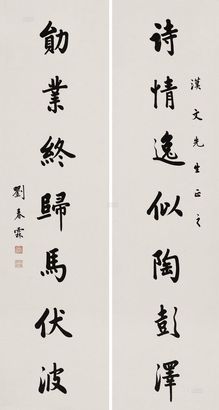 诗情逸似陶彭澤
漢文先生正之
勛業終歸馬伏波
劉春霖